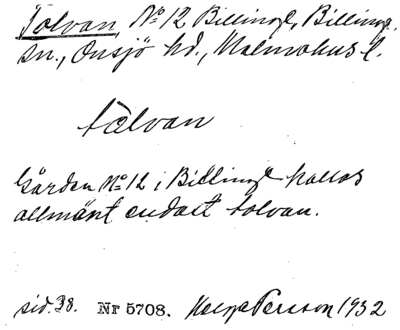 Tolvan, No 12 Billinge, Billinge
sn., Onsjö hd., Malmöhus l.
tålvan
Gården No 12 i Billinge kallas
allmänt endast tolvan.
sid. 38. Nr 5708. Helge Persson 1932